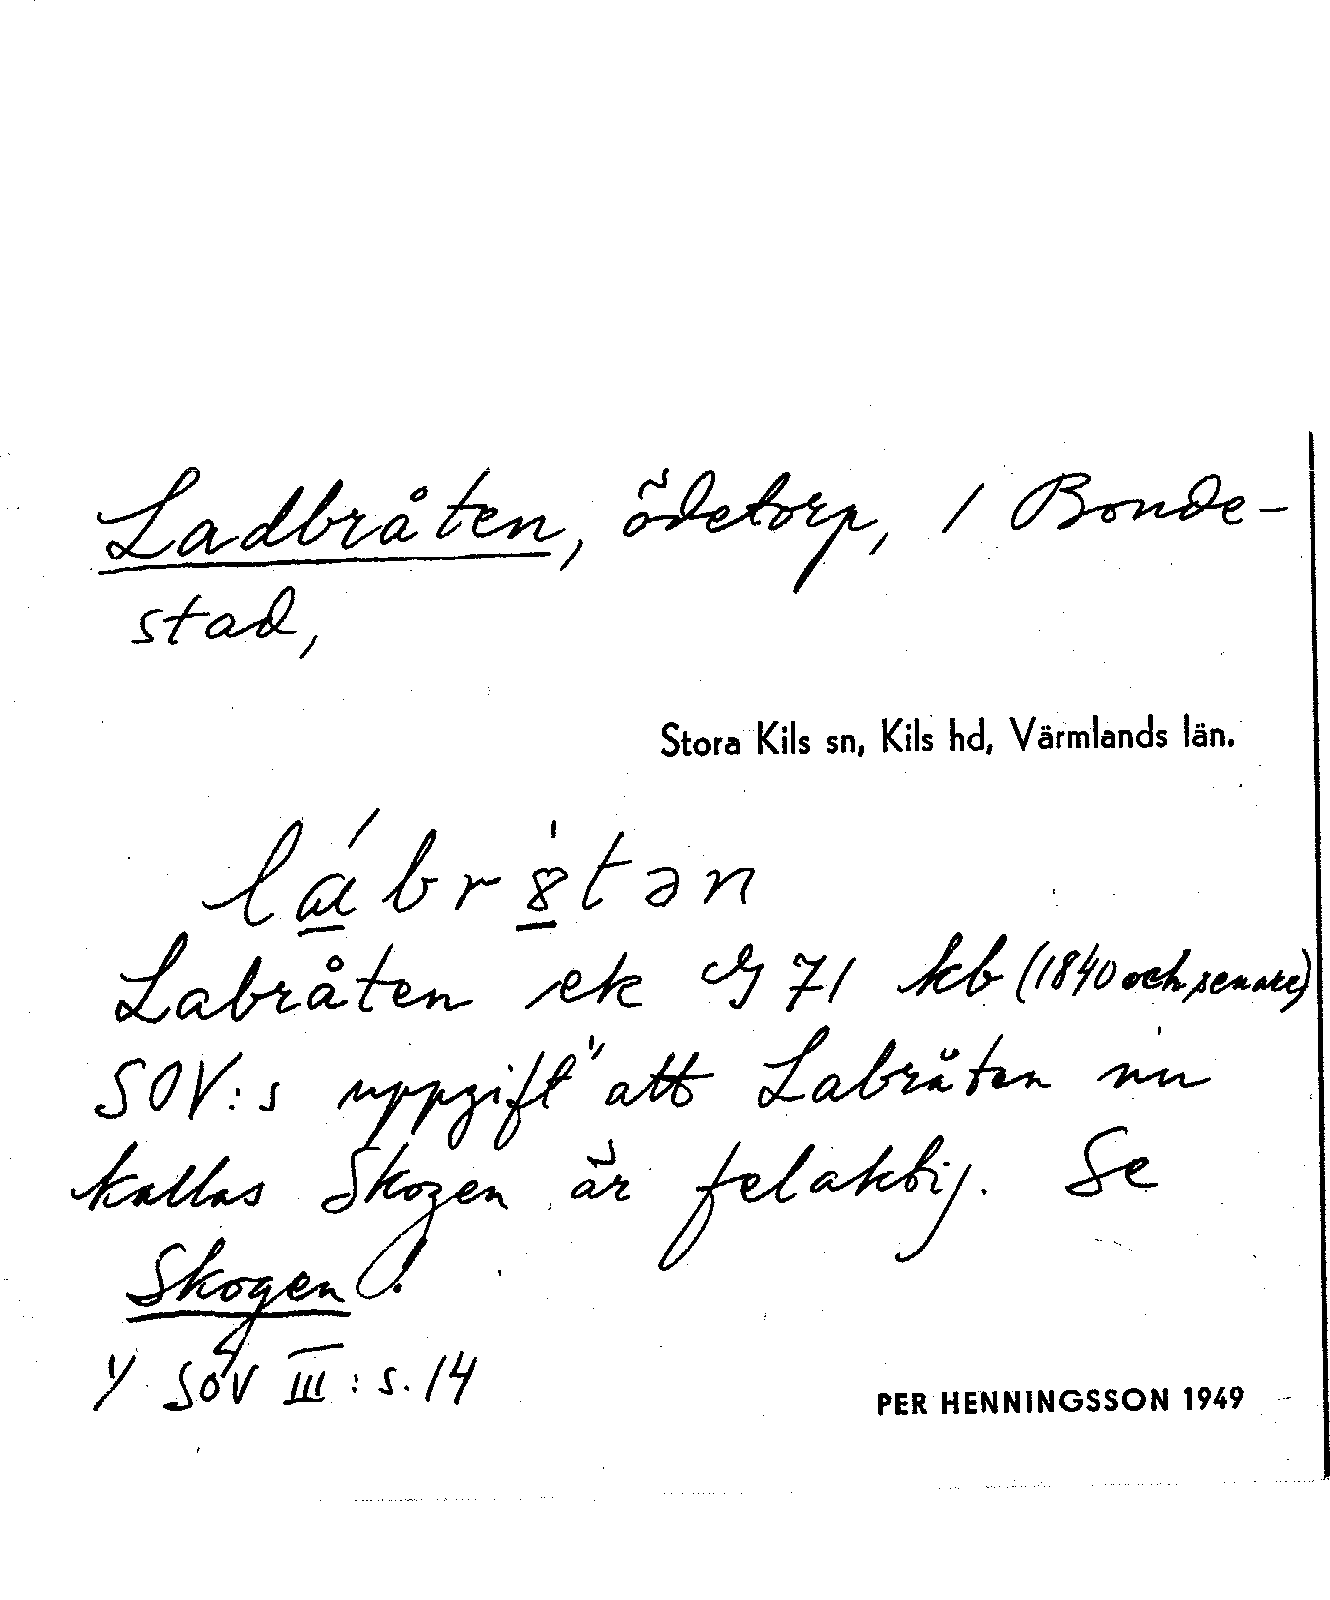 Ladbråten, ödetorp, 1 Bonde-
stad,
Stora Kils sn, Kils hd, Värmlands län.
lábr8̀tən
Labråten ek 71 kb (1840 och senare)
SOV:s uppgift ¹⁾ att Labråten nu
kallas Skogen är felaktig. Se
Skogen!
1/ SOV III: s. 14
PER HENNINGSSON 1949